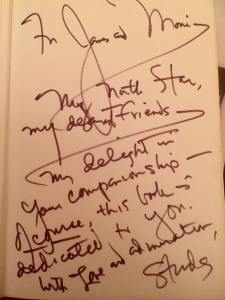 For James and Moni –
My North Star,
my dearest friends –
my delight in
your companionship –
Of course, this book is
dedicated to you.
With love and admiration,
Studs